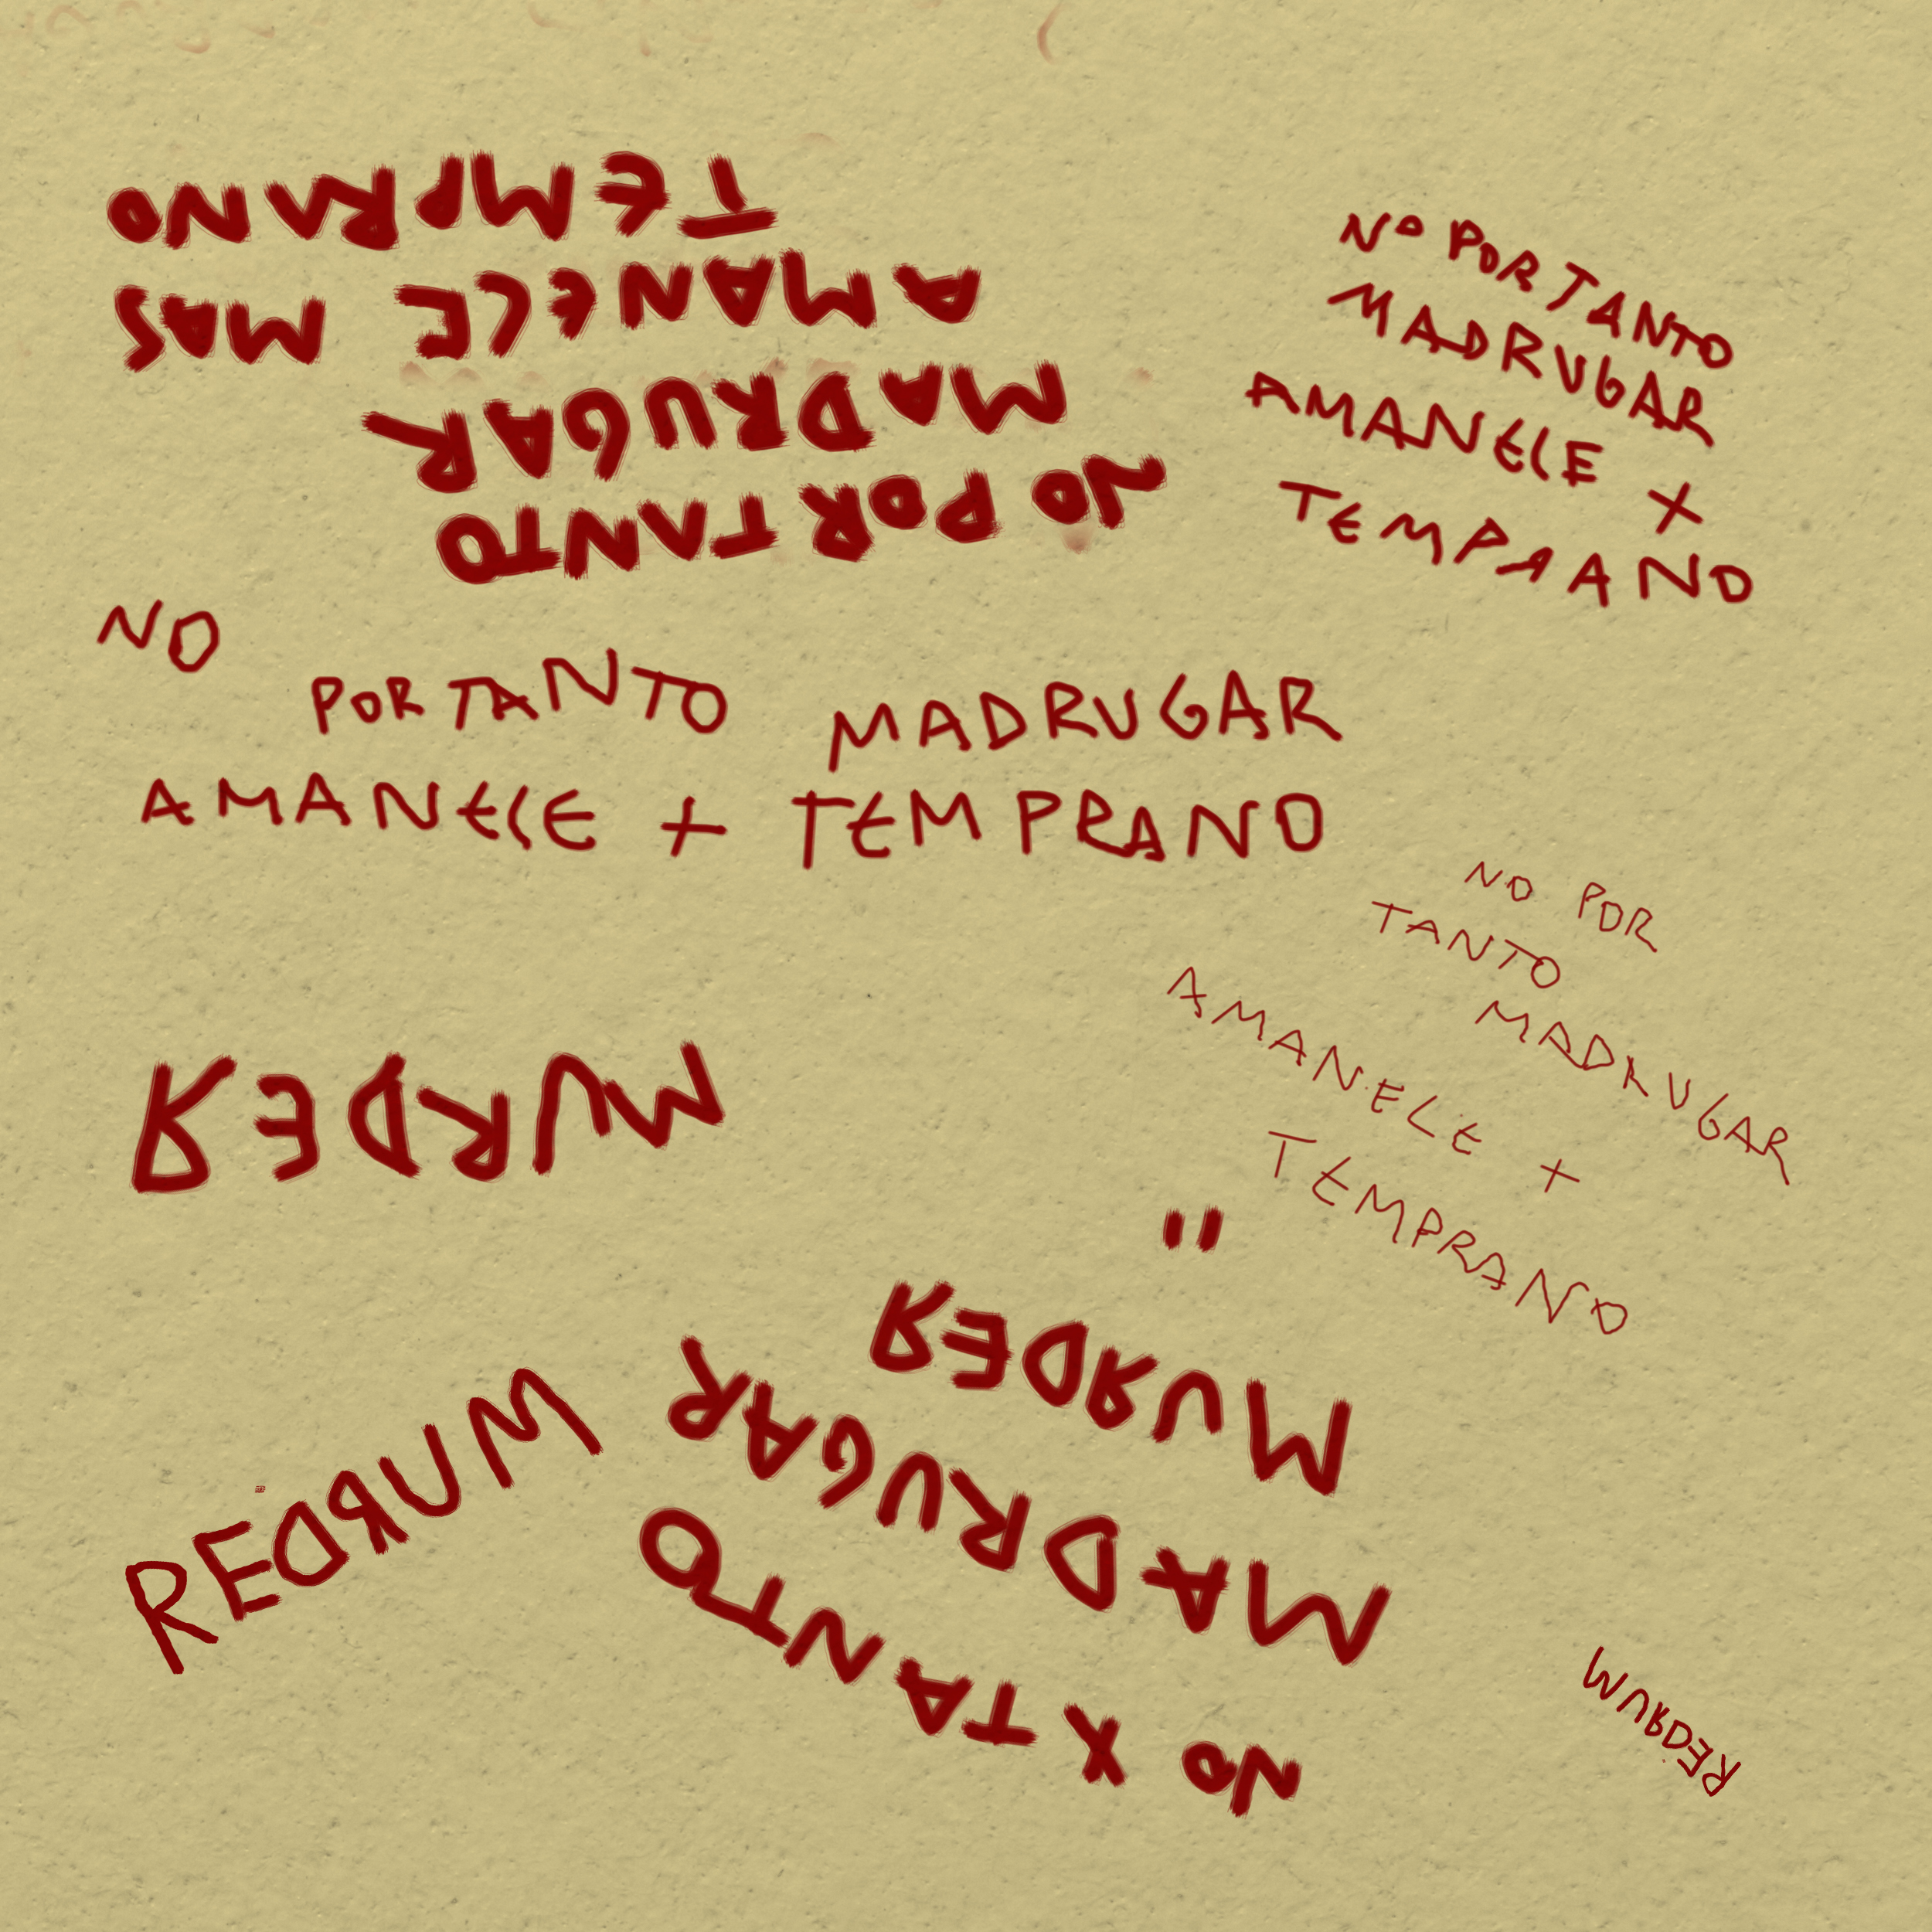 NO POR TANTO
MADRUGAR
AMANECE MAS
TEMPRANO
NO POR TANTO
MADRUGAR
AMANECE +
TEMPRANO
NO POR TANTO MADRUGAR
AMANECE + TEMPRANO
NO POR
TANTO
MADRUGAR
AMANECE +
TEMPRANO
MURDER
NO X TANTO
MADRUGAR
MURDER
"
REDRUM
REDRUM